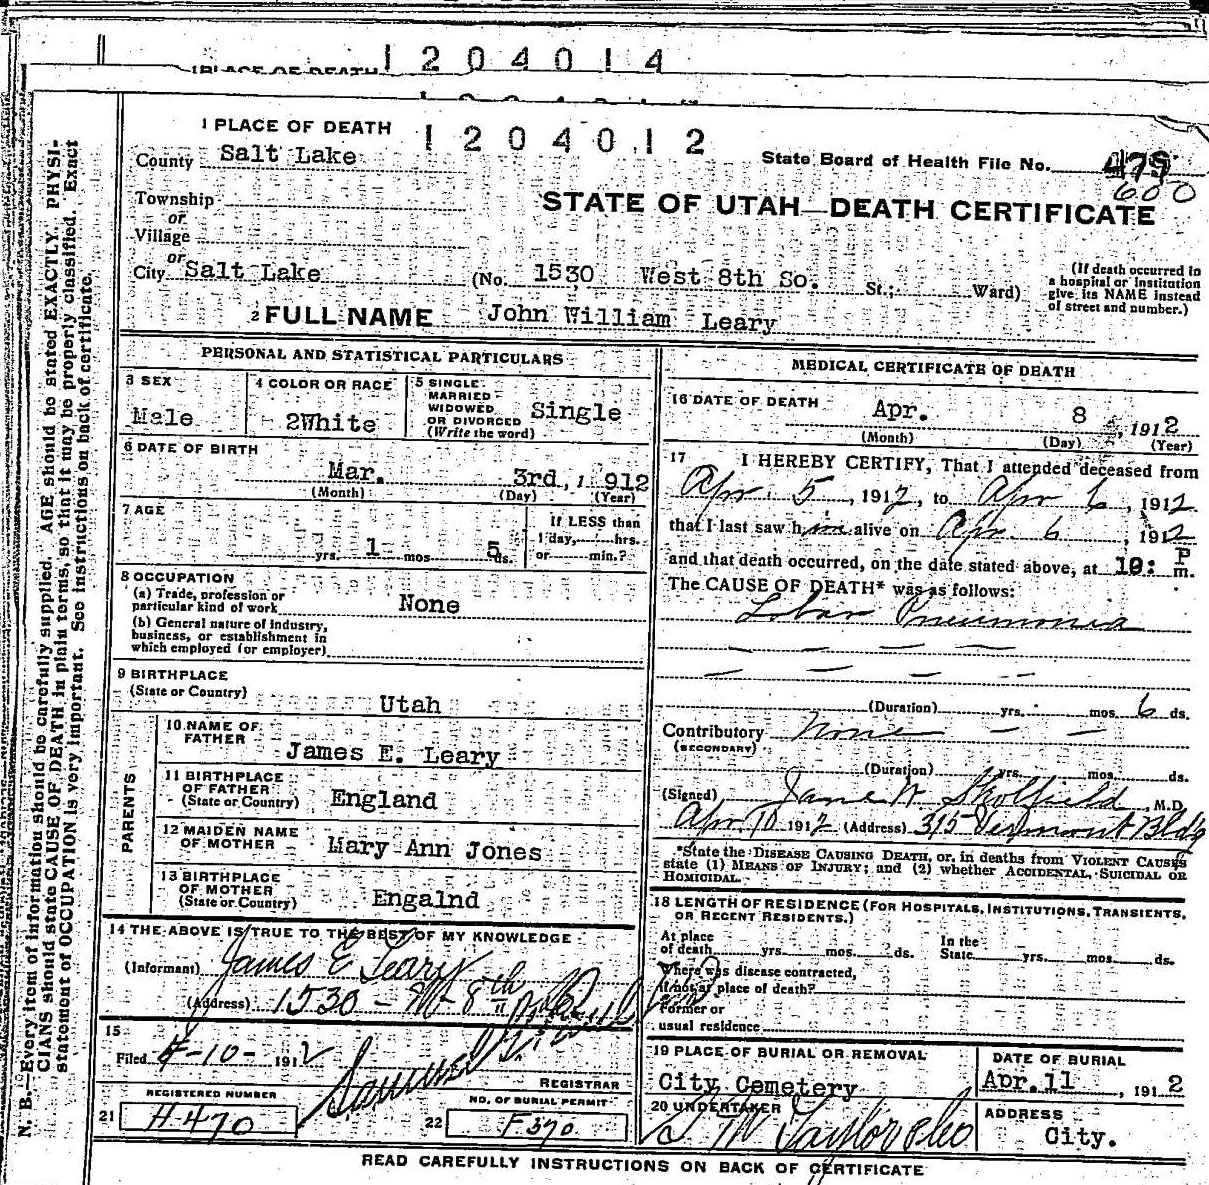 1204014
PLACE OF DEATH
1 PLACE OF DEATH 1204012
County Salt Lake State Board of Health File No. 479
600
Township
or
Village
STATE OF UTAH—DEATH CERTIFICATE
or
City Salt Lake (No. 1530 West 8th So. St.; Ward)
(If death occurred in
a hospital or institution
give its NAME instead
of street and number.)
2 FULL NAME John William Leary
PERSONAL AND STATISTICAL PARTICULARS
3 SEX
Male
4 COLOR OR RACE
2White
5 SINGLE
MARRIED
WIDOWED
OR DIVORCED
(Write the word)
Single
6 DATE OF BIRTH
Mar. 3rd, 1 912
(Month) (Day) (Year)
7 AGE
yrs. 1 mos 5 ds.
If LESS than
1 day, hrs.
or min.?
8 OCCUPATION
(a) Trade, profession or
particular kind of work None
(b) General nature of industry,
business, or establishment in
which employed (or employer)
9 BIRTHPLACE
(State or Country) Utah
PARENTS
10 NAME OF
FATHER James E. Leary
11 BIRTHPLACE
OF FATHER
(State or Country) England
12 MAIDEN NAME
OF MOTHER Mary Ann Jones
13 BIRTHPLACE
OF MOTHER
(State or Country) Engalnd
14 THE ABOVE IS TRUE TO THE BEST OF MY KNOWLEDGE
(Informant) James E Leary
(Address) 1530 - W - 8th
15
Filed 4-10- 1912
REGISTRAR
REGISTERED NUMBER
21 H-470
NO. OF BURIAL PERMIT
22 F370
MEDICAL CERTIFICATE OF DEATH
16 DATE OF DEATH Apr. 8, 1912
(Month) (Day) (Year)
17 I HEREBY CERTIFY, That I attended deceased from
Apr. 5, 1912, to Apr 6, 1912
that I last saw him alive on Apr. 6, 1912
and that death occurred, on the date stated above, at 10: P m.
The CAUSE OF DEATH* was as follows:
Lobar Pneumonia
(Duration) yrs. mos 6 ds.
Contributory None
(SECONDARY)
(Duration) yrs. mos. ds.
(Signed) Jane W Skolfield, M.D.
Apr 10 1912 (Address) 315 Vermont Bldg
*State the DISEASE CAUSING DEATH, or, in deaths from VIOLENT CAUSES
state (1) MEANS OF INJURY; and (2) whether ACCIDENTAL, SUICIDAL OR
HOMICIDAL.
18 LENGTH OF RESIDENCE (FOR HOSPITALS, INSTITUTIONS, TRANSIENTS,
OR RECENT RESIDENTS.)
At place
of death yrs. mos. ds. In the
State yrs. mos. ds.
Where was disease contracted,
if not at place of death?
Former or
usual residence
19 PLACE OF BURIAL OR REMOVAL
City Cemetery
DATE OF BURIAL
Apr. 11, 1912
20 UNDERTAKER
S M Taylor & Co
ADDRESS
City.
READ CAREFULLY INSTRUCTIONS ON BACK OF CERTIFICATE
N. B.—Every item of information should be carefully supplied. AGE should be stated EXACTLY. PHYSI-
CIANS should state CAUSE OF DEATH in plain terms, so that it may be properly classified. Exact
statement of OCCUPATION is very important. See instructions on back of certificate.